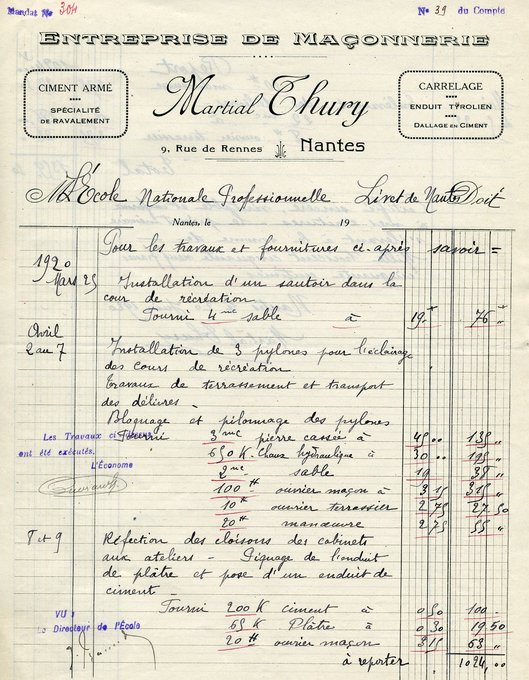 Mandat No 304
No 39 du Compte
ENTREPRISE DE MAÇONNERIE
CIMENT ARMÉ
SPÉCIALITÉ
DE RAVALEMENT
Martial Thury
9, Rue de Rennes Nantes
CARRELAGE
ENDUIT TYROLIEN
DALLAGE EN CIMENT
M L'École Nationale Professionnelle Livet de Nantes Doit
Nantes, le 19
Pour les travaux et fournitures ci-après savoir =
1920
Mars 25 Installation d'un sautoir dans la
cour de récréation
Fourni 4 mc sable à 19 " 76 "
Avril
2 au 7 Installation de 3 pylones pour l'éclairage
des cours de récréation
Travaux de terrassement et transport
des délivres
Bloquage et pilonnage des pylones
Fourni 3 mc pierre cassée à 45 00 135 "
650 K. Chaux hydraulique à 30 00 195 "
2 mc sable 19 38 "
100 H ouvrier maçon à 3 15 315 "
10 H ouvrier terrassier 2 75 27 50
20 H manœuvre 2 75 55 "
Les Travaux
ont été exécutés.
L'Économe
8 et 9 Réfection des cloisons des cabinets
aux ateliers - Piquage de l'enduit
de plâtre et pose d'un enduit de
ciment -
Fourni 200 K ciment à 0 50 100 -
65 K Plâtre à 0 30 19 50
20 H ouvrier maçon 3 15 63 "
à reporter 1024,00
VU :
Le Directeur de l'École